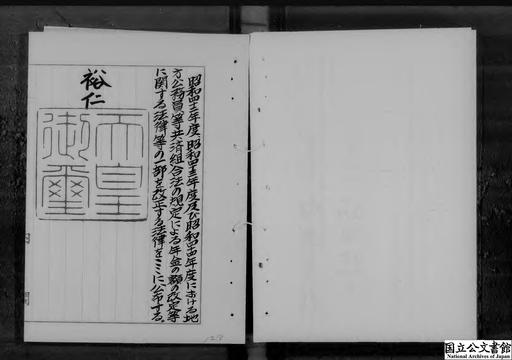 昭和四十二年度、昭和四十三年度及び昭和四十四年度における地
方公務員等共済組合法の規定による年金の額の改定等
に関する法律等の一部を改正する法律をここに公布する。
裕仁
天皇
御璽
国立公文書館
National Archives of Japan